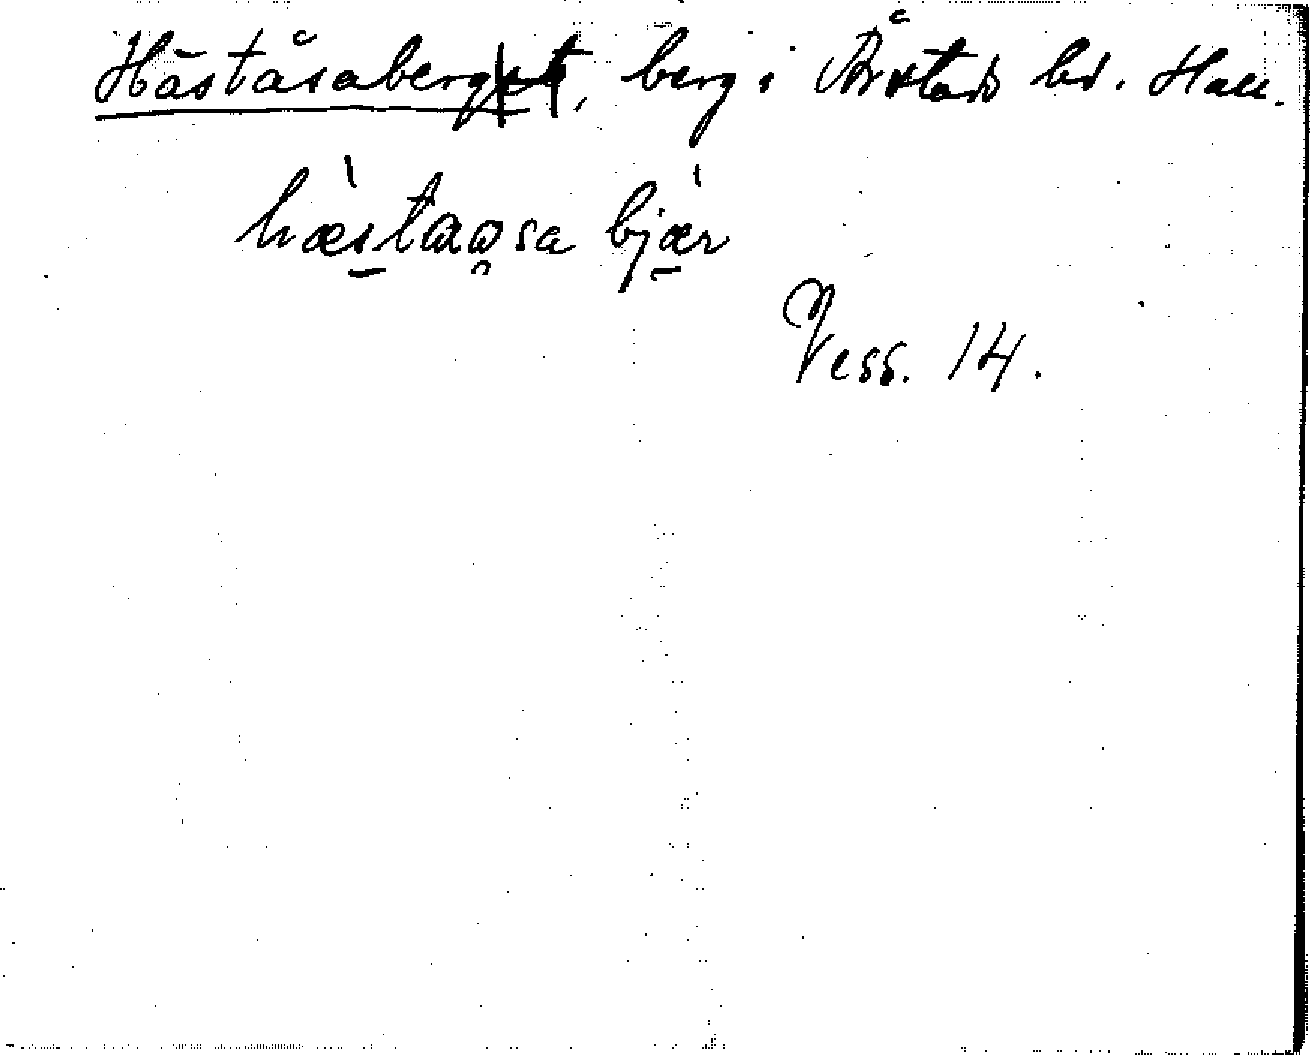 Häståsaberg, berg i Årstads hd. Hall.
hæstaosa bjær
Vess. 14.